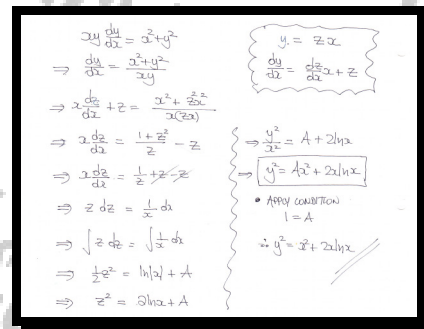 xy dy/dx = x²+y²
⇒ dy/dx = (x²+y²)/(xy)
⇒ x dz/dx + z = (x² + z²x²)/(x(zx))
⇒ x dz/dx = (1+z²)/z − z
⇒ x dz/dx = 1/z + z − z
⇒ z dz = 1/x dx
⇒ ∫ z dz = ∫ 1/x dx
⇒ ½z² = ln|x| + A
⇒ z² = 2lnx + A
y = zx
dy/dx = dz/dx x + z
⇒ y²/x² = A + 2lnx
⇒ y² = Ax² + 2xlnx
• APPLY CONDITION
1 = A
∴ y² = x² + 2xlnx